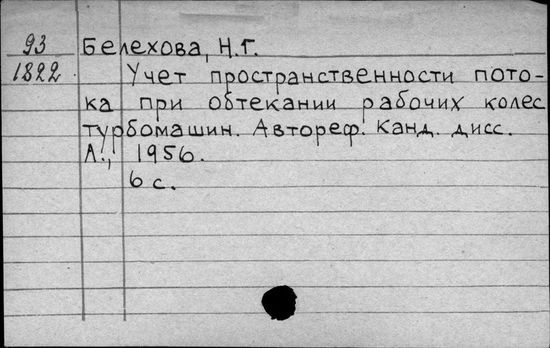 93 Белехова, Н.Г.
1822 Учет пространственности пото-
ка при обтекании рабочих колес
турбомашин. Автореф. Канд. дисс.
Л., 1956.
6 с.